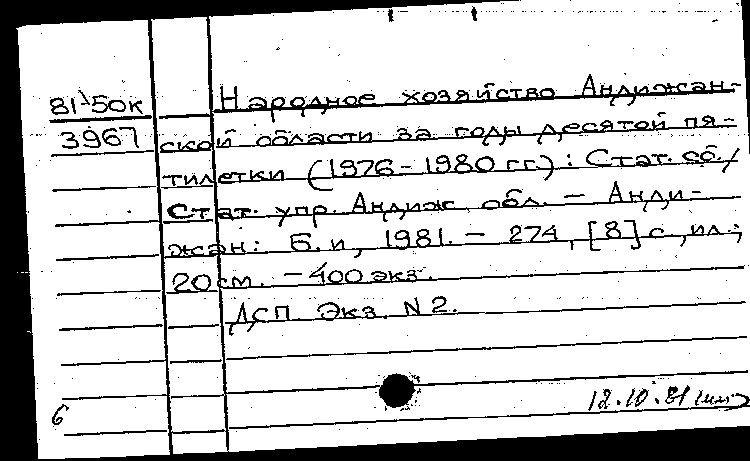 81-50к Народное хозяйство Андижан-
3967 ской области за годы десятой пя-
тилетки (1976-1980 гг.): Стат. сб./
Стат. упр. Андиж. обл. - Анди-
жан: Б. и, 1981. - 274, [8] с., ил.;
20 см. - 400 экз.
ДСП Экз. N 2.
6 12.10.81